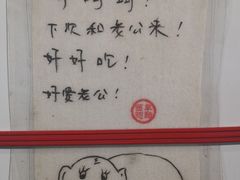 下次和老公来！
好好吃！
好爱老公！